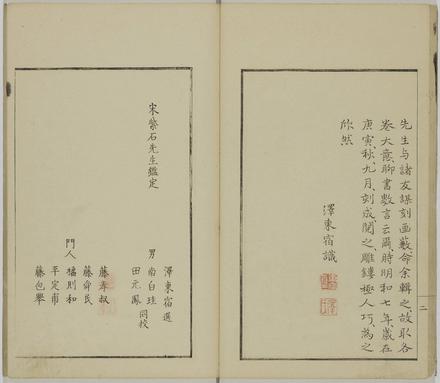 先生与諸友謀刻画藪命余輯之故取各
卷大意聊書數言云爾時明和七年歲在
庚寅秋九月刻成閱之雕鏤極人巧為之
欣然
澤東宿識
二
宋紫石先生鑑定
澤東宿選
男 尚白珪
田元鳳 同校
門人
藤壽叔
藤舜民
橘則和
平定甫
藤包擧